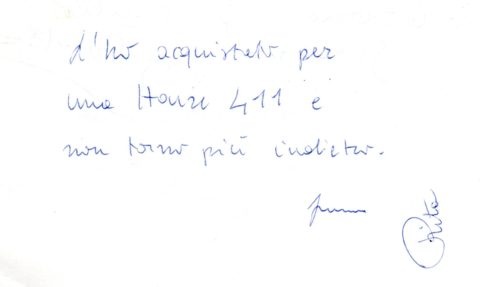 L'ho acquistato per
una House 411 e
non torno più indietro.
Rita